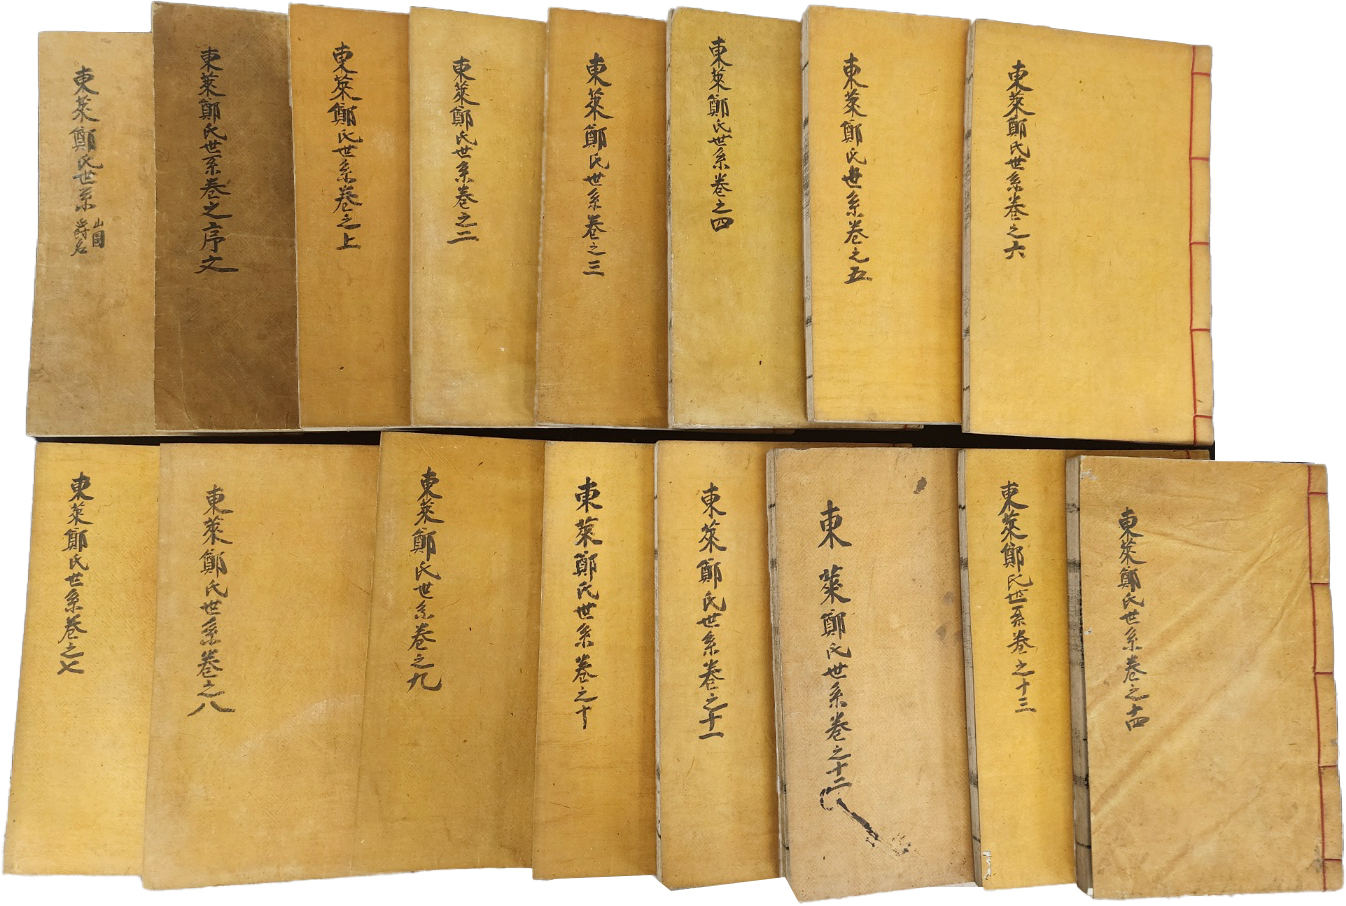 東萊鄭氏世系 山圖 爵名
東萊鄭氏世系卷之序文
東萊鄭氏世系卷之上
東萊鄭氏世系卷之二
東萊鄭氏世系卷之三
東萊鄭氏世系卷之四
東萊鄭氏世系卷之五
東萊鄭氏世系卷之六
東萊鄭氏世系卷之七
東萊鄭氏世系卷之八
東萊鄭氏世系卷之九
東萊鄭氏世系卷之十
東萊鄭氏世系卷之十一
東萊鄭氏世系卷之十二
東萊鄭氏世系卷之十三
東萊鄭氏世系卷之十四